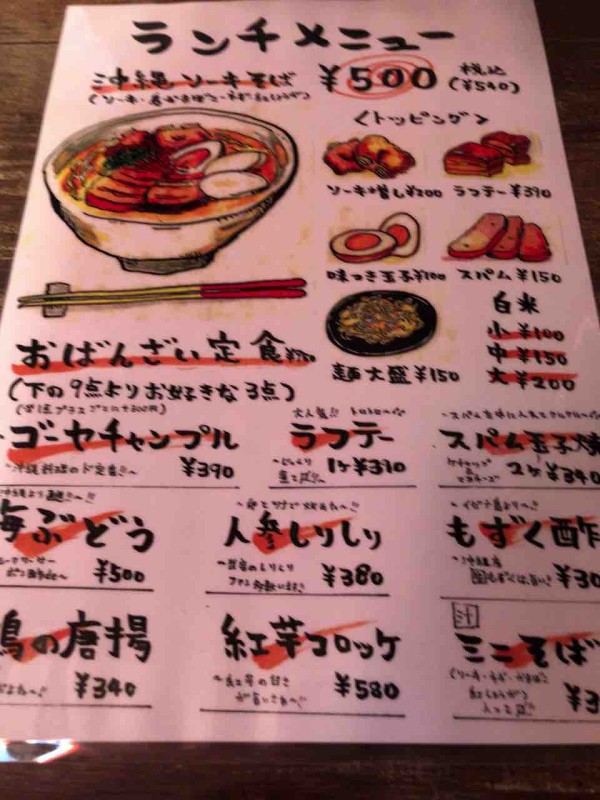 ランチメニュー
沖縄ソーキそば ¥500 税込(¥540)
<トッピング>
ソーキ増し¥200 ラフテー¥390
味つき玉子¥100 スパム¥150
白米
小¥100
中¥150
大¥200
麺大盛¥150
おばんざい定食
(下の9点よりお好きな3点)
ゴーヤチャンプル
¥390
大人気!!
ラフテー
1ヶ¥390
スパム玉子焼
ケチャップ
マヨネーズ
2ケ¥340
海ぶどう
¥500
人参しりしり
¥380
もずく酢
¥30
鶏の唐揚
¥340
紅芋コロッケ
~紅芋の甘さ
¥580
汁
ミニそば
紅しょうが
¥3